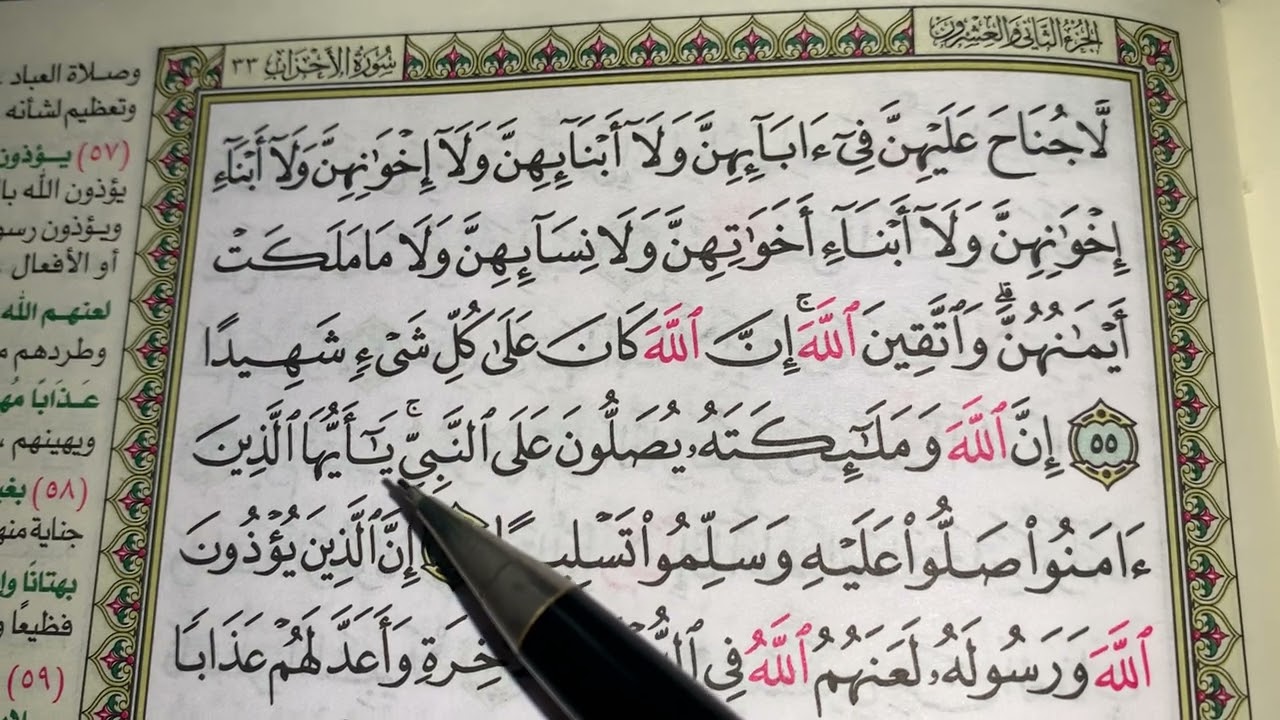 الجزء الثاني والعشرون
سورة الأحزاب ٣٣
لَّا جُنَاحَ عَلَيْهِنَّ فِىٓ ءَابَآئِهِنَّ وَلَآ أَبْنَآئِهِنَّ وَلَآ إِخْوَٰنِهِنَّ وَلَآ أَبْنَآءِ
إِخْوَٰنِهِنَّ وَلَآ أَبْنَآءِ أَخَوَٰتِهِنَّ وَلَا نِسَآئِهِنَّ وَلَا مَا مَلَكَتْ
أَيْمَٰنُهُنَّ ۗ وَٱتَّقِينَ ٱللَّهَ ۚ إِنَّ ٱللَّهَ كَانَ عَلَىٰ كُلِّ شَىْءٍ شَهِيدًا
٥٥ إِنَّ ٱللَّهَ وَمَلَٰٓئِكَتَهُۥ يُصَلُّونَ عَلَى ٱلنَّبِىِّ ۚ يَٰٓأَيُّهَا ٱلَّذِينَ
ءَامَنُوا۟ صَلُّوا۟ عَلَيْهِ وَسَلِّمُوا۟ إِنَّ ٱلَّذِينَ يُؤْذُونَ
ٱللَّهَ وَرَسُولَهُۥ لَعَنَهُمُ ٱللَّهُ فِى وَأَعَدَّ لَهُمْ عَذَابًا
وصلاة العباد
وتعظيم لشأنه
(٥٧) يـؤذون
يؤذون الله
ويـؤذون
أو الأفعال
لعنهـم الله
وطردهم
عَـذَابًا
ويهينهم ،
(٥٨)
جناية
بهتانًا
فظيعًا
(٥٩)